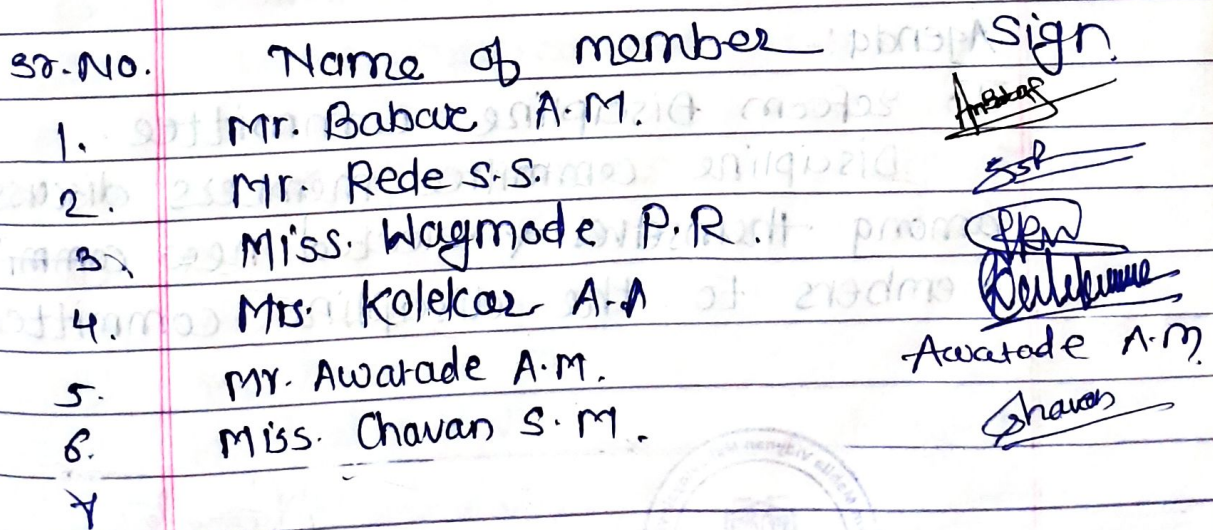 Sr.No. Name of member Sign.
1. Mr. Babar A.M.
2. Mr. Rede S.S. SSR
3. Miss. Wagmode P.R. PRW
4. Mrs. Kolekar A.A
5. Mr. Awatade A.M. Awatade A.M.
6. Miss. Chavan S.M. Chavan